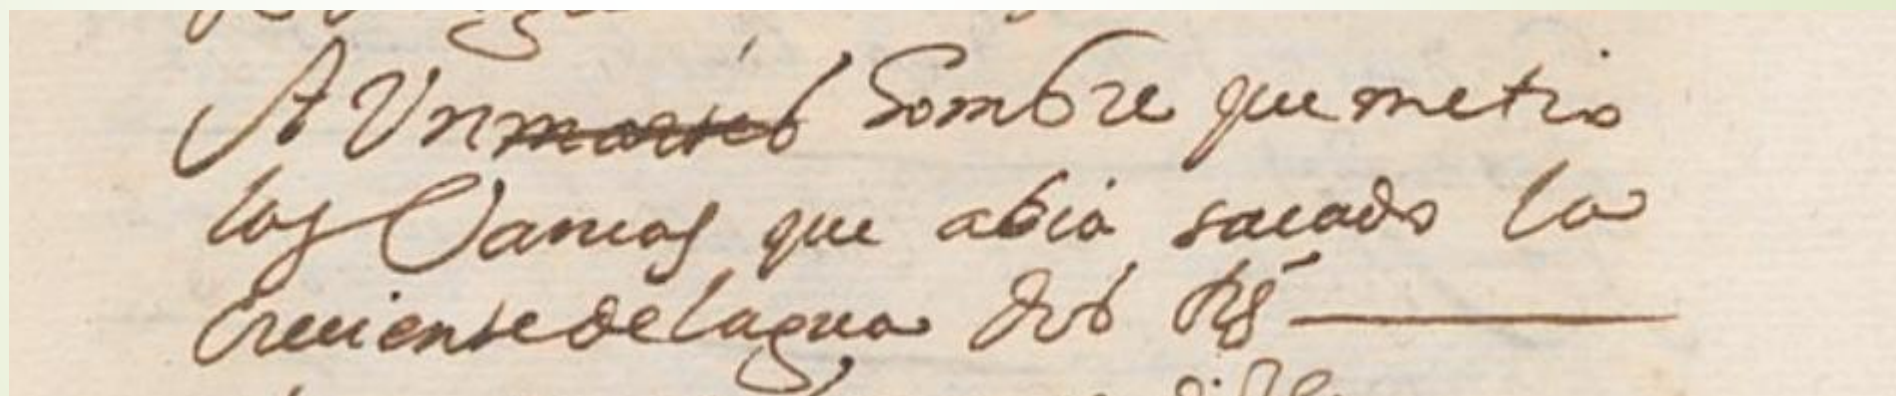 A Un hombre que metio
los Vancos que abia sacado la
Creciente de lagua dos Rs